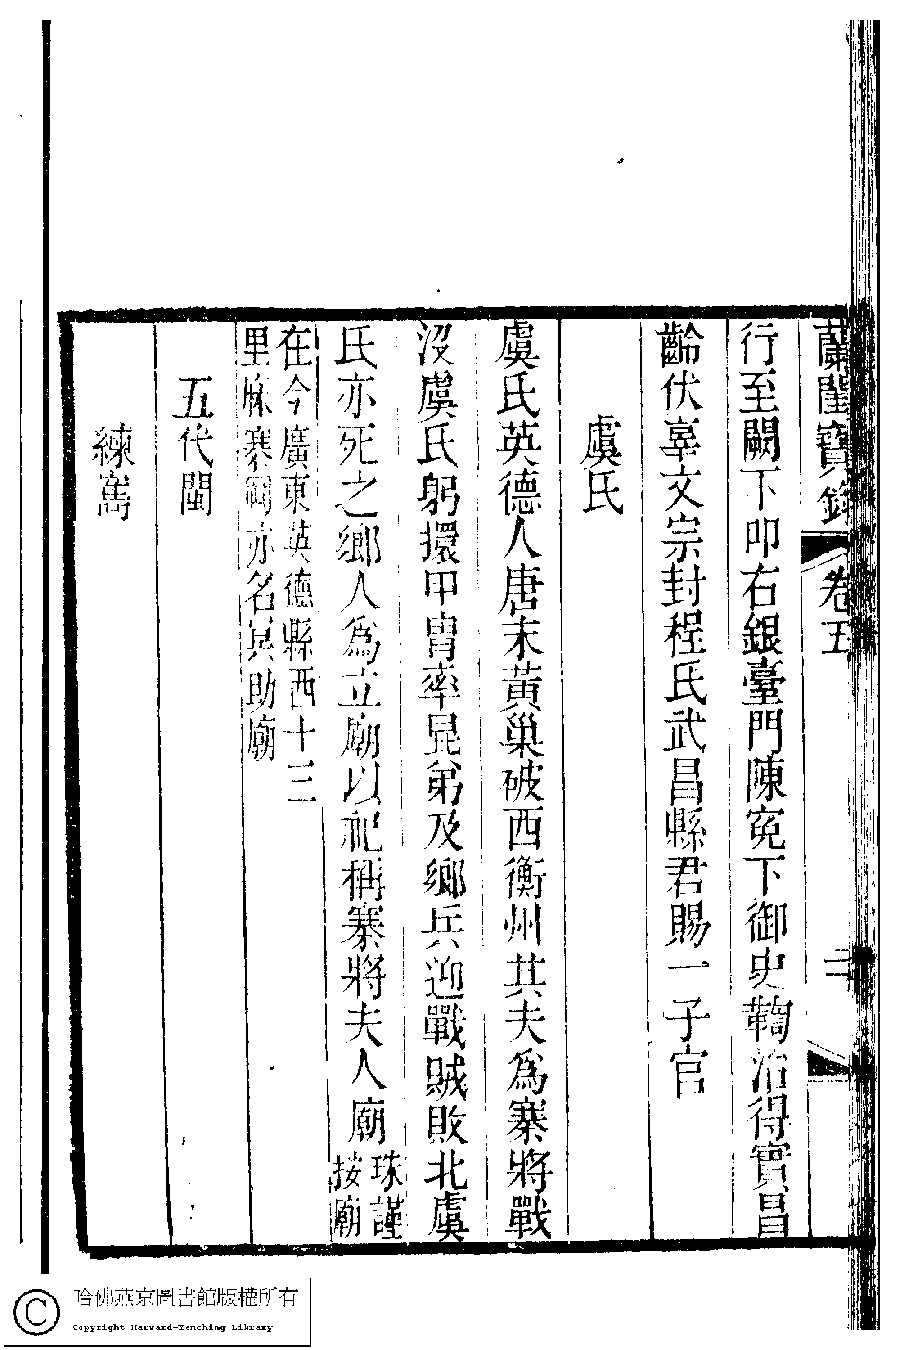 蘭閨寶錄 卷五 二
行至闕下叩右銀臺門陳寃下御史鞫治得實昌
齡伏辜文宗封程氏武昌縣君賜一子官
虞氏
虞氏英德人唐末黃巢破西衡州其夫為寨將戰
沒虞氏躬擐甲胄率昆弟及鄉兵迎戰賊敗北虞
氏亦死之鄉人為立廟以祀稱寨將夫人廟珠謹
按廟
在今廣東英德縣西十三
里麻寨岡亦名冥助廟
五代閩
練寯
哈佛燕京圖書館版權所有
Copyright Harvard-Yenching Library